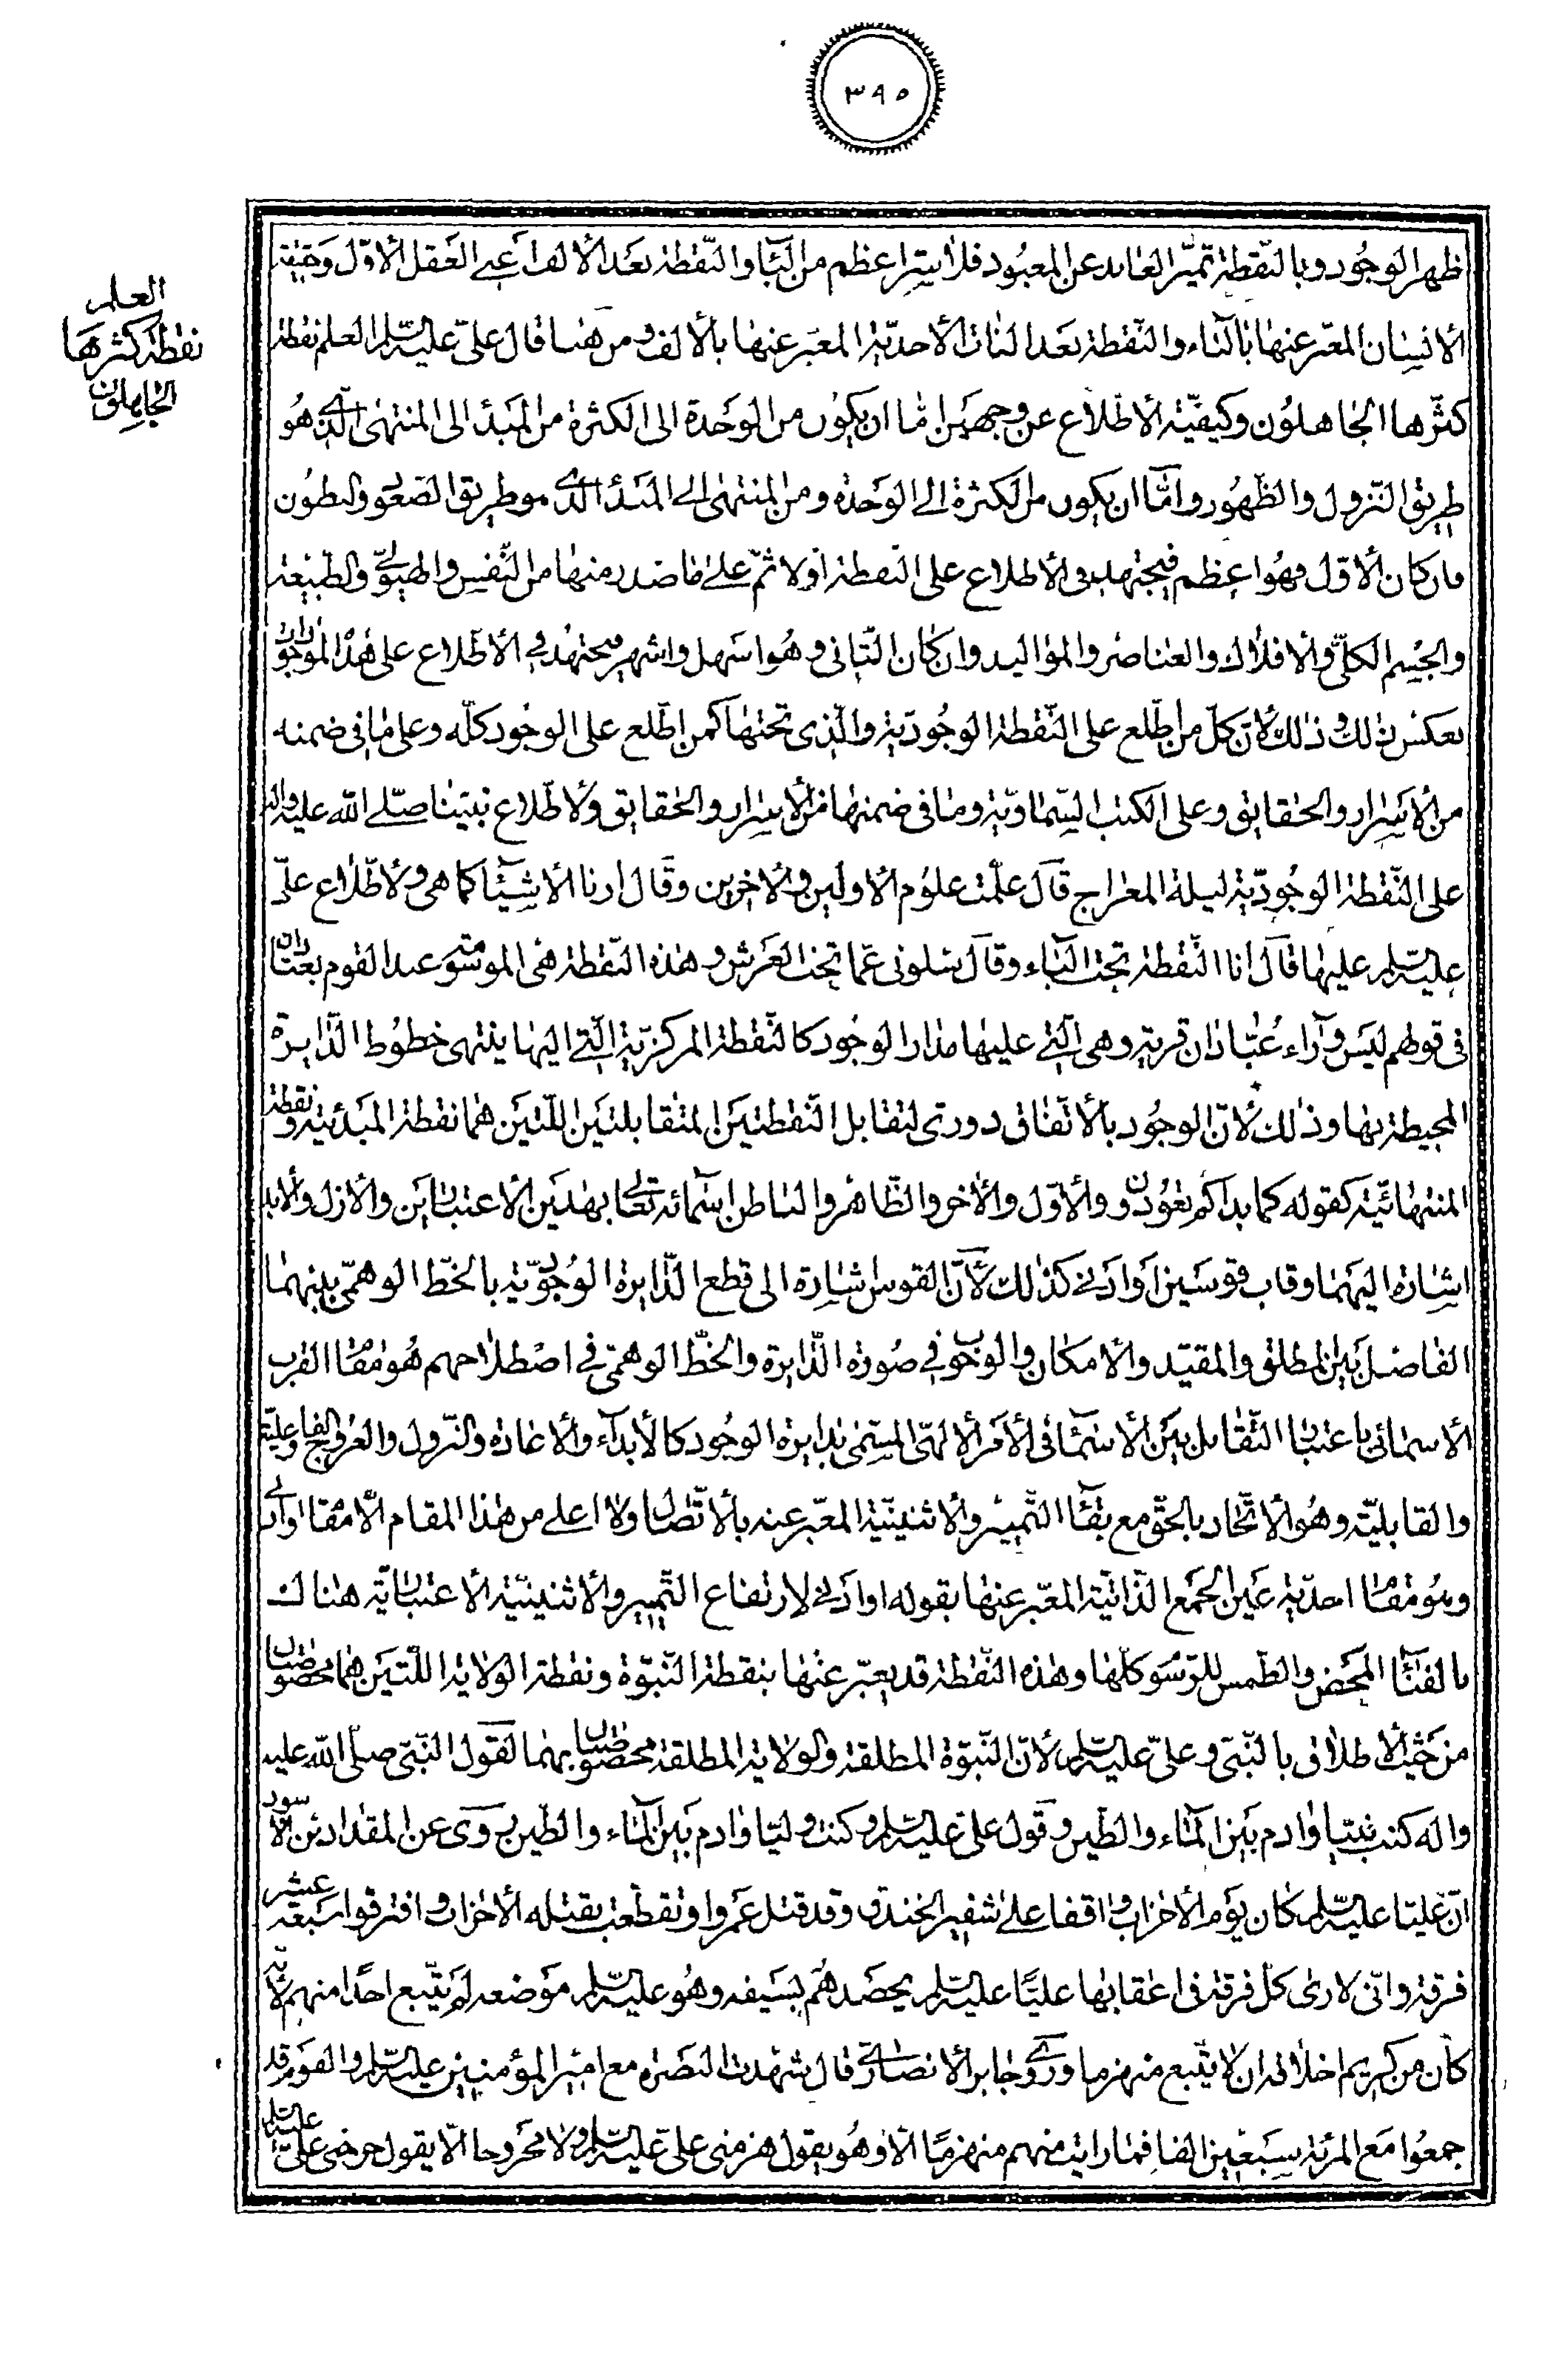 ٣٩٥
ظهر الوجود وبالنّقطة تميّز العابد عن المعبود فلا سرّ اعظم من الباء والنّقطة بعد الالف اعنى العقل الاوّل وحقيقة
العلم
نقطة كثرها
الجاهلون
الانسان المعبّر عنها بالباء والنّقطة بعد الذات الاحديّة المعبّر عنها بالالف ومن هنا قال علىّ عليه السّلم العلم نقطة
كثّرها الجاهلون وكيفيّة الاطّلاع عن وجهين امّا ان يكون من الوحدة الى الكثرة من المبدأ الى المنتهى الّذى هو
طريق النّزول والظّهور وامّا ان يكون من الكثرة الى الوحدة ومن المنتهى الى المبدأ الّذى هو طريق الصّعود والبطون
فان كان الاوّل وهو اعظم فيجتهد فى الاطلاع على النّقطة اوّلا ثمّ على ما صدر منها من النّفس والهيولى والطّبيعة
والجسم الكلّى والافلاك والعناصر والمواليد وان كان الثّانى وهو اسهل واشهر فيجتهد فى الاطّلاع على هذه الموجودات
بعكس ذلك وذلك لانّ كلّ من اطّلع على النّقطة الوجوديّة والّذى تحتها كمن اطّلع على الوجود كلّه وعلى ما فى ضمنه
من الاسرار والحقايق وعلى الكتب السّماويّة وما فى ضمنها من الاسرار والحقايق ولاطّلاع نبيّنا صلّى الله عليه واله
على النّقطة الوجوديّة ليلة المعراج قال علمت علوم الاوّلين والاخرين وقال ارنا الاشياء كما هى ولاطّلاع علىّ
عليه السّلم عليها قال انا النّقطة تحت الباء وقال سلونى عمّا تحت العرش وهذه النّقطة هى الموسومة عند القوم بعبّادان
فى قولهم ليس وراء عبّادان قرية وهى الّتى عليها مدار الوجود كالنّقطة المركزيّة الّتى اليها ينتهى خطوط الدّايرة
المحيطة بها وذلك لانّ الوجود بالاتّفاق دورى لتقابل النّقطتين المتقابلتين اللّتين هما نقطة المبدئيّة ونقطة
المنتهائيّة كقوله كما بداكم تعودون والاوّل والاخر والظّاهر والباطن اسمائه تعالى بهذين الاعتبارين والازل والابد
اشارة اليهما وقاب قوسين او ادنى كذلك لانّ القوس اشارة الى قطع الدّايرة الوجوديّة بالخطّ الوهمى بينهما
الفاصل بين المطلق والمقيّد والامكان والوجوب فى صورة الدّايرة والخطّ الوهمى فى اصطلاحهم هو مقام القرب
الاسمائى باعتبار التّقابل بين الاسماء فى الامر الالهىّ المسمّى بدايرة الوجود كالابداء والاعادة والنّزول والعروج والفاعليّة
والقابليّة وهو الاتّحاد بالحقّ مع بقاء التّميير والاثنينيّة المعبّر عنه بالاتّصال ولا اعلى من هذا المقام الّا مقام او ادنى
وهو مقام احديّة عين الجمع الذّاتيّة المعبّر عنها بقوله او ادنى لارتفاع التّميير والاثنينيّة الاعتباريّة هناك
بالفناء المحض والطّمس للرّسوم كلّها وهذه النّقطة قد يعبّر عنها بنقطة النّبوّة ونقطة الولاية اللّتين هما مخصوصتان
من حيث الاطلاق بالنّبىّ وعلىّ عليه السّلم لانّ النّبوّة المطلقة والولاية المطلقة مخصوصتان بهما لقول النّبىّ صلّى الله عليه
واله كنت نبيّا وادم بين الماء والطّين وقول علىّ عليه السّلم وكنت وليّا وادم بين الماء والطّين روى عن المقداد بن الاسود
انّ عليّا عليه السّلم كان يوم الاحزاب واقفا على شفير الخندق وقد قتل عمروا وتقطّعت بقتله الاحزاب وافترقوا سبعة عشر
فرقة وانّى لارى كلّ فرقة فى اعقابها عليّا عليه السّلم يحصدهم بسيفه وهو عليه السّلم موضعه لم يتّبع احدا منهم لانّه
كان من كريم اخلاقه ان لا يتّبع منهزما وروى جابر الانصارى قال شهدت البصرة مع امير المؤمنين عليه السّلم والقوم قد
جمعوا مع المرئة سبعين الفا فما رايت منهم منهزما الّا وهو يقول هزمنى علىّ عليه السّلم ولا مجروحا الّا يقول جرحنى علىّ عليه السلم